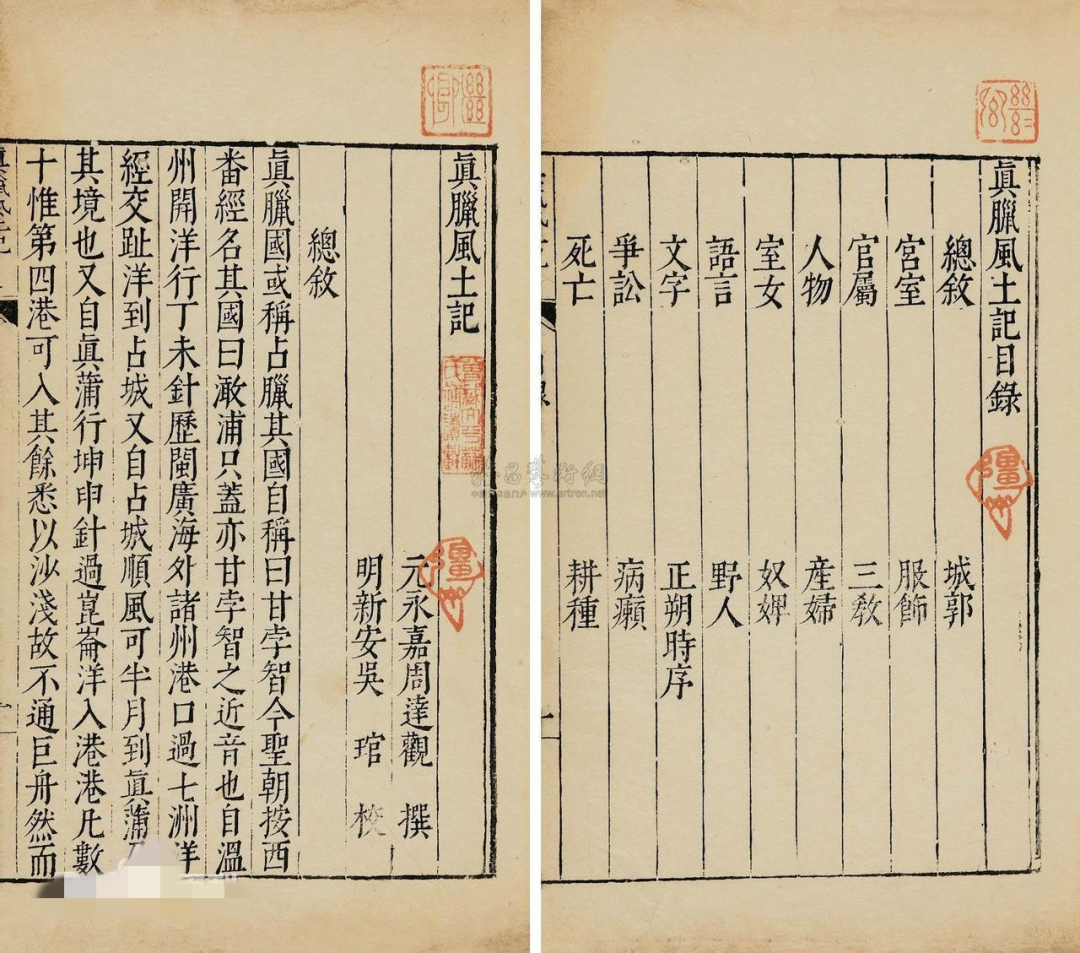 眞臘風土記目錄
總敘 城郭
宮室 服飾
官屬 三教
人物 產婦
室女 奴婢
語言 野人
文字 正朔時序
爭訟 病癩
死亡 耕種
眞臘風土記
元永嘉周達觀 撰
明新安吳 琯 校
總敘
眞臘國或稱占臘其國自稱曰甘孛智今聖朝按西
番經名其國曰澉浦只蓋亦甘孛智之近音也自溫
州開洋行丁未針歷閩廣海外諸州港口過七洲洋
經交趾洋到占城又自占城順風可半月到眞蒲乃
其境也又自眞蒲行坤申針過崑崙洋入港港凡數
十惟第四港可入其餘悉以沙淺故不通巨舟然而
眞臘風土記
雅昌藝術網
www.artron.net